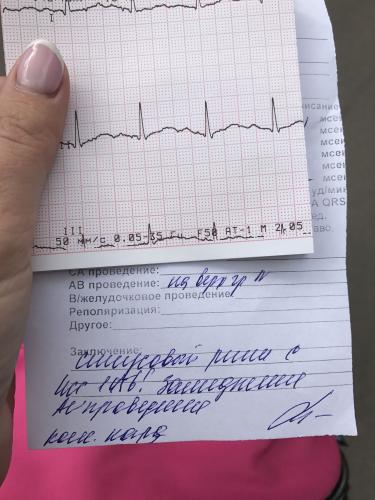 I
III
50 мм/с 0.05-35 Гц F50 АТ-1 М 2.05
исание
мсек
мсек
мсек
мсек
мсек
уд/мин
QRS
ед.
СА проведение:
АВ проведение: на верх гр N
В/желудочковое проведение
Реполяризация:
Другое:
Заключение:
Синусовой ритм с
ЧСС замедление
проведения
конс. кард